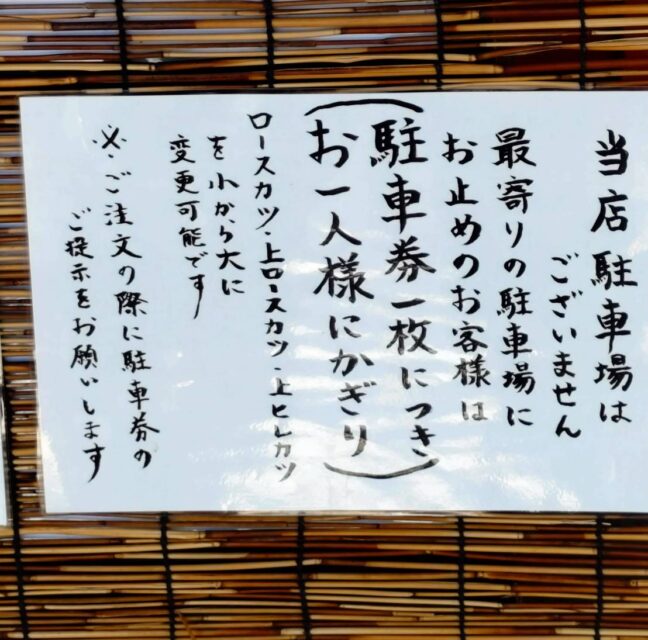 当店駐車場は
ございません
最寄りの駐車場に
お止めのお客様は
(駐車券一枚につき
お一人様にかぎり)
ロースカツ・上ロースカツ・上ヒレカツ
を小から大に
変更可能です
※・ご注文の際に駐車券の
ご提示をお願いします